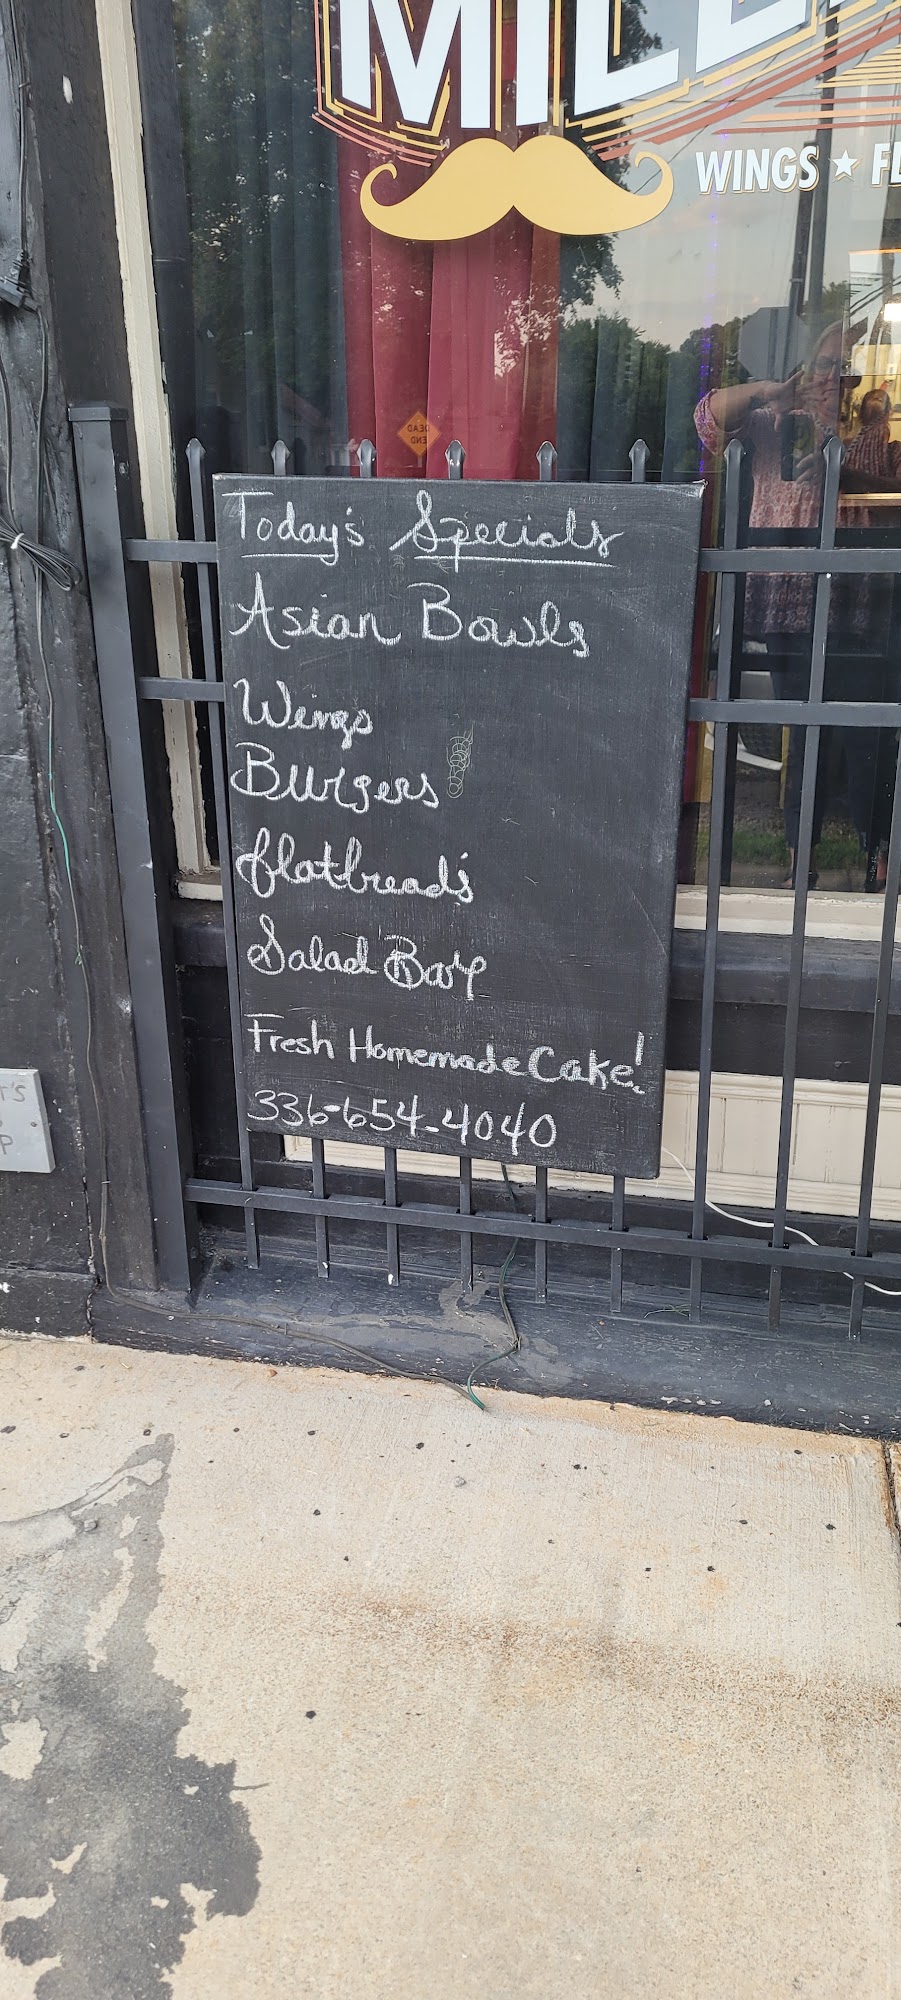 WINGS ★
DEAD
END
Today's Specials
Asian Bowls
Wings
Burgers
flatbread's
Salad Bar
Fresh Homemade Cake!
336-654-4040